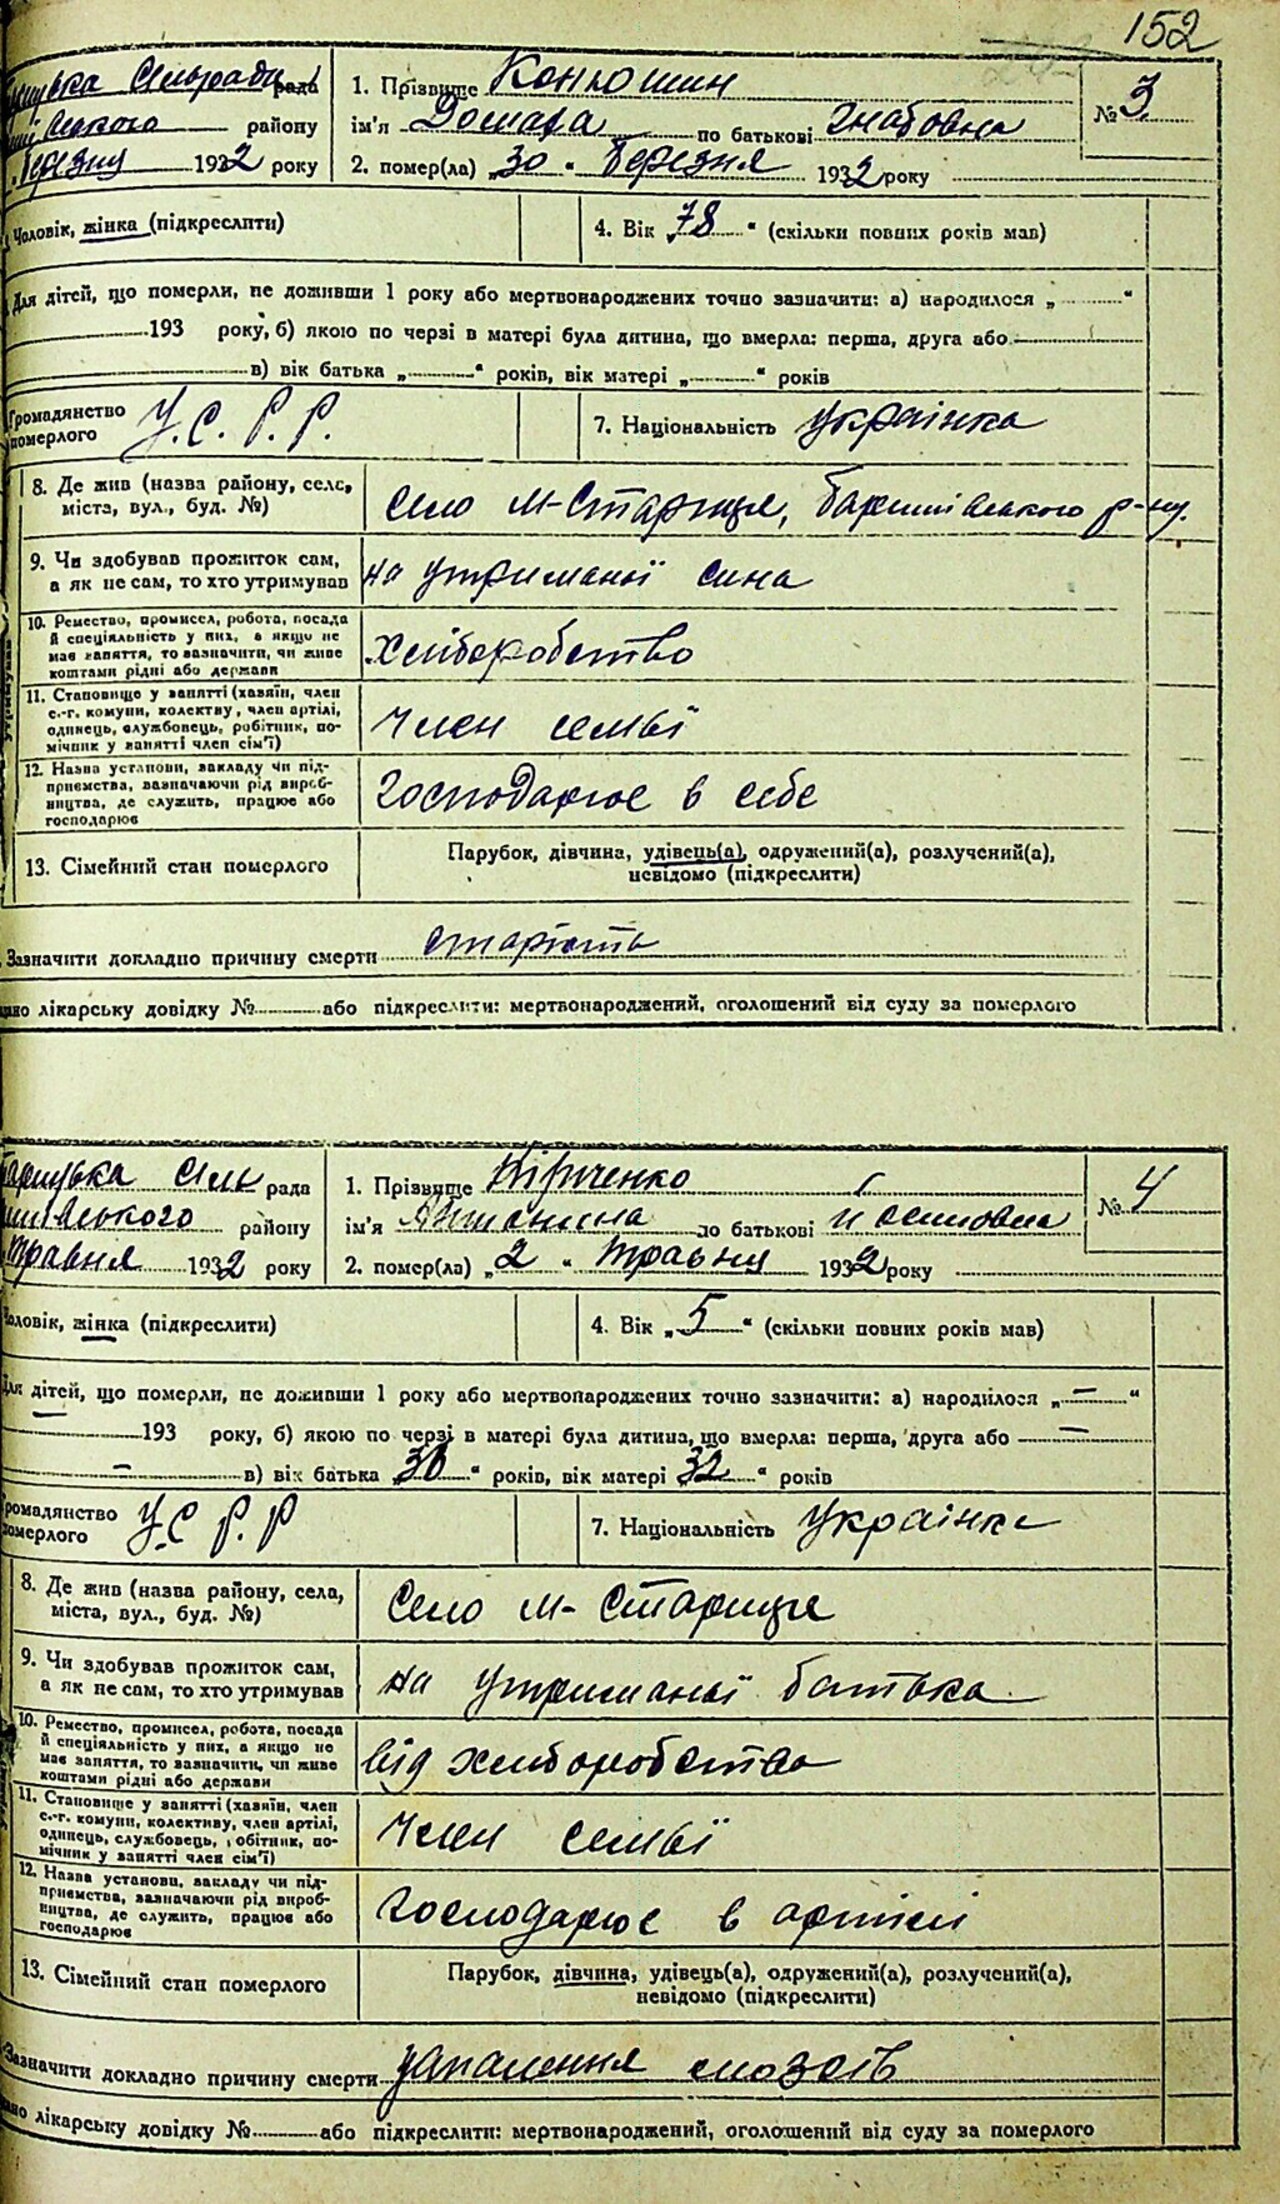 152
Сільради рада 1. Прізвище Конюшин № 3
ського району ім'я Домаха по батькові Гнатовна
березня 1932 року 2. помер(ла) „30“ березня 1932 року
Чоловік, жінка (підкреслити) 4. Вік „78“ (скільки повних років мав)
Для дітей, що померли, не доживши 1 року або мертвонароджених точно зазначити: а) народилося „ “
193 року, б) якою по черзі в матері була дитина, що вмерла: перша, друга або
в) вік батька „ “ років, вік матері „ “ років
Громадянство померлого У.С.Р.Р. 7. Національність українка
8. Де жив (назва району, села, міста, вул., буд. №) село М-Стариця, Баришівського р-ну.
9. Чи здобував прожиток сам, а як не сам, то хто утримував на утриманні сина
10. Ремество, промисел, робота, посада й спеціяльність у них, а якщо не має заняття, то зазначити, чи живе коштами рідні або держави хліборобство
11. Становище у занятті (хазяїн, член с.-г. комуни, колективу, член артілі, одинець, службовець, робітник, помічник у занятті член сім'ї) Член семьї
12. Назва установи, закладу чи підприємства, зазначаючи рід виробництва, де служить, працює або господарює Господарює в себе
13. Сімейний стан померлого Парубок, дівчина, удівець(а), одружений(а), розлучений(а),
невідомо (підкреслити)
Зазначити докладно причину смерти старість
лікарську довідку № або підкреслити: мертвонароджений, оголошений від суду за померлого
Сіль рада 1. Прізвище Кіріченко № 4
ського району ім'я Антонина по батькові
травня 1932 року 2. помер(ла) „2“ травня 1932 року
Чоловік, жінка (підкреслити) 4. Вік „5“ (скільки повних років мав)
Для дітей, що померли, не доживши 1 року або мертвонароджених точно зазначити: а) народилося „–“
193 року, б) якою по черзі в матері була дитина, що вмерла: перша, друга або –
– в) вік батька „ “ років, вік матері „32“ років
Громадянство померлого У.С.Р.Р 7. Національність українка
8. Де жив (назва району, села, міста, вул., буд. №) Село М-Стариця
9. Чи здобував прожиток сам, а як не сам, то хто утримував на утриманьї батька
10. Ремество, промисел, робота, посада й спеціяльність у них, а якщо не має заняття, то зазначити, чи живе коштами рідні або держави від хліборобства
11. Становище у занятті (хазяїн, член с.-г. комуни, колективу, член артілі, одинець, службовець, робітник, помічник у занятті член сім'ї) Член семьї
12. Назва установи, закладу чи підприємства, зазначаючи рід виробництва, де служить, працює або господарює Господарює в артілі
13. Сімейний стан померлого Парубок, дівчина, удівець(а), одружений(а), розлучений(а),
невідомо (підкреслити)
Зазначити докладно причину смерти запалення мозгів
лікарську довідку № або підкреслити: мертвонароджений, оголошений від суду за померлого